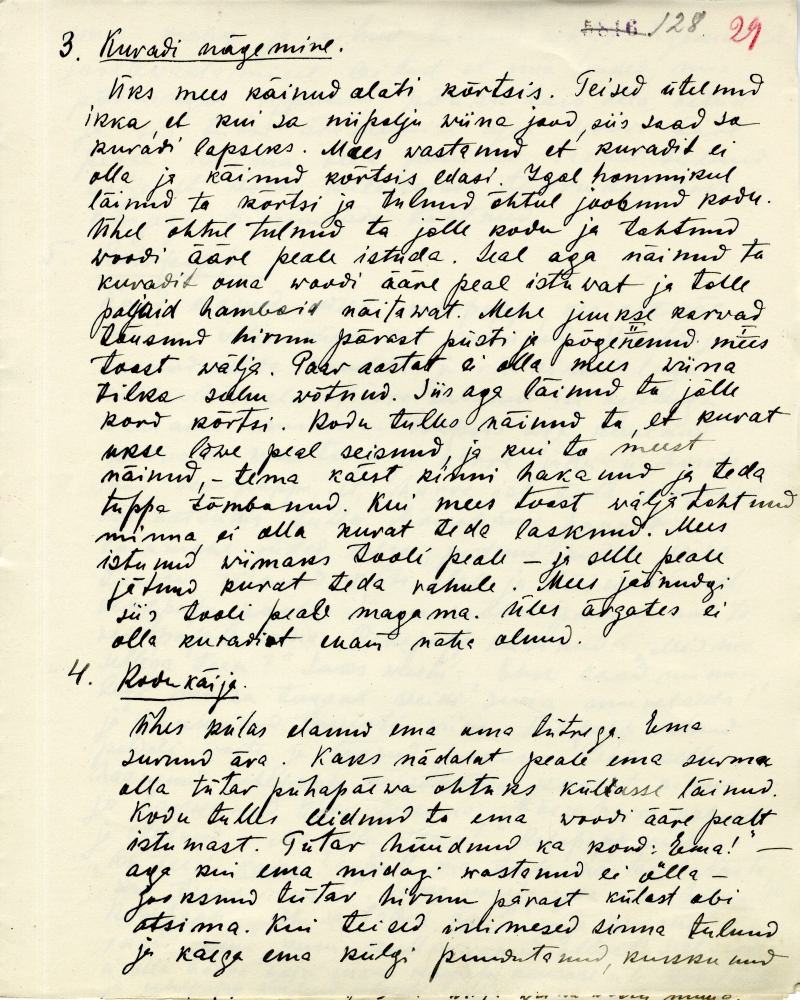 5816 128. 29
3. Kuradi nägemine.
Üks mees käinud alati kõrtsis. Teised ütelnud
ikka, et kui sa niipalju wiina jood, siis saad sa
kuradi lapseks. Mees wastanud et kuradit ei
olla ja käinud kõrtsis edasi. Igal hommikul
läinud ta kõrtsi ja tulnud õhtul joobnud kodu.
Ühel õhtul tulnud ta jälle kodu ja tahtnud
woodi ääre peale istuda. Seal aga näinud ta
kuradit oma woodi ääre peal istuwat ja talle
paljaid hambaid näitawat. Mehe juukse karwad
tõusnud hirmu pärast püsti ja põgenenud mees
toast wälja. Paar aastat ei olla mees wiina
tilka suhu wõtnud. Siis aga läinud ta jälle
kord kõrtsi. Kodu tulles näinud ta, et kurat
ukse läwe peal seisnud, ja kui ta meest
näinud, – tema käest kinni hakanud ja teda
tuppa tõmbanud. Kui mees toast wälja tahtnud
minna, ei olla kurat teda lasknud. Mees
istunud wiimaks tooli peale – ja selle peale
jätnud kurat teda rahule. Mees jäänudgi
siis tooli peale magama. Üles ärgates ei
olla kuradist enam näha olnud.
4. Kodukäija.
Ühes külas elanud ema oma tütrega. Ema
surnud ära. Kaks nädalat peale ema surma
olla tütar pühapäewa õhtuks külasse läinud.
Kodu tulles leidnud ta ema woodi ääre pealt
istumast. Tütar hüüdnud ka kord: Ema!" –
aga kui ema midagi wastanud ei olla –
jooksnud tütar hirmu pärast külast abi
otsima. Kui teised inimesed sinna tulnud
ja käega ema külgi puudutanud, kukkunud